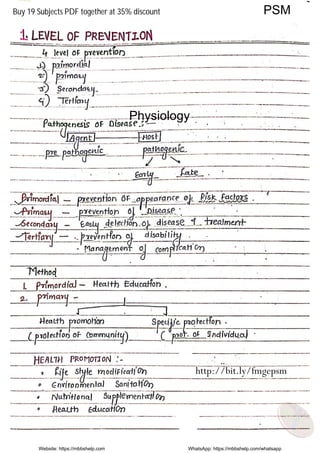 Buy 19 Subjects PDF together at 35% discount
PSM
1. LEVEL OF PREVENTION
4 level of prevention
1) primordial
2) primary
3) Secondary.
4) Tertiary
Physiology
Pathogenesis of Disease :-
Agent Host
pre pathogenic pathogenic.
Early Late
Primordial — prevention of appearance of Risk Factors.
Primary — prevention of Disease.
Secondary — Early detection of disease & treatment
Tertiary — prevention of disability
• Management of complication
Method
1. Primordial — Health Education.
2. primary —
Health promotion Specific protection.
(protection of community) (prot. of individual)
HEALTH PROMOTION :-
• Life style modification
http://bit.ly/fmgepsm
• Environmental Sanitation
• Nutritional Supplementation
• Health Education
Website: https://mbbshelp.com WhatsApp: https://mbbshelp.com/whatsapp